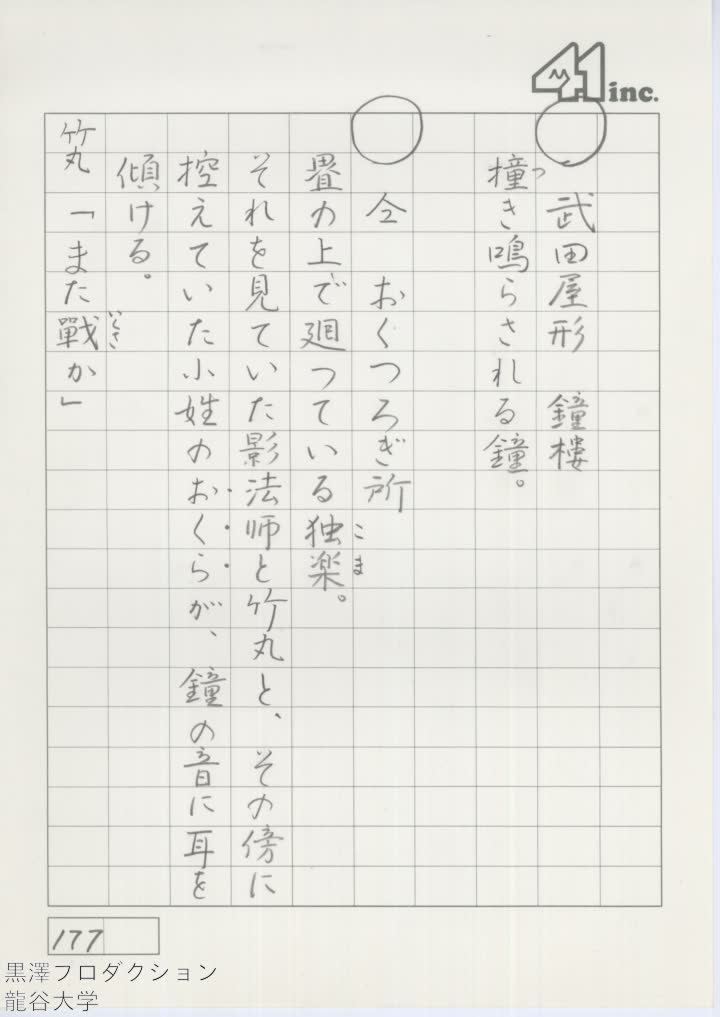 41 inc.
武田屋形　鐘楼
撞き鳴らされる鐘。
つ
仝　おくつろぎ所
畳の上で廻っている独楽。
こま
それを見ていた影法師と竹丸と、その傍に
控えていた小姓のおくらが、鐘の音に耳を
傾ける。
竹丸「また戰か」
いくさ
177
黒澤プロダクション
龍谷大学